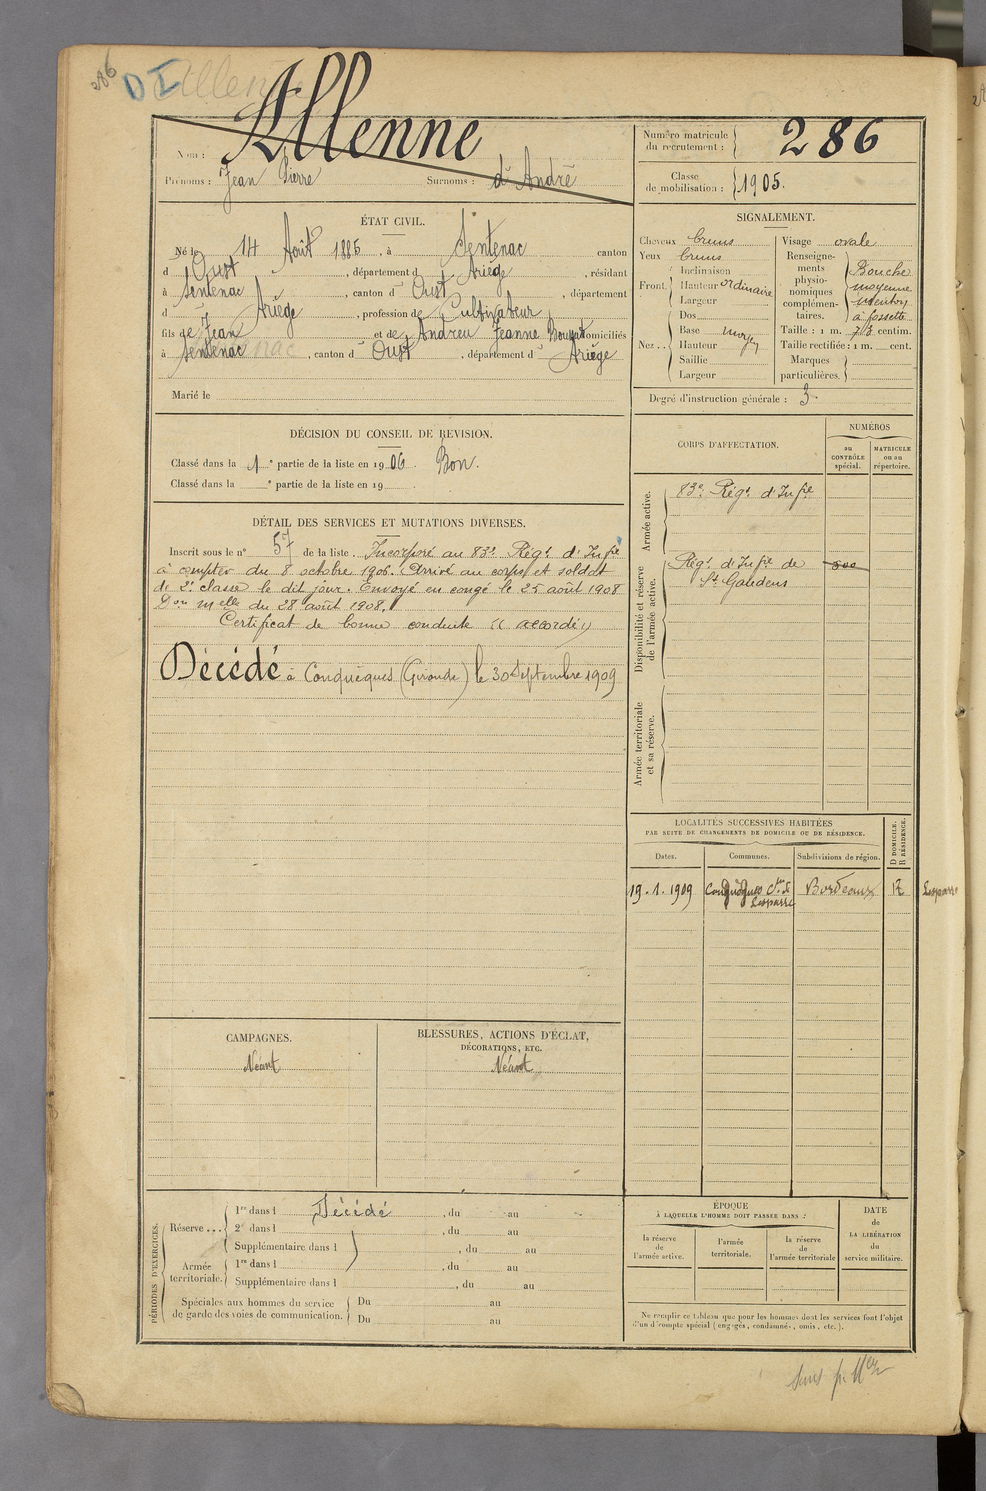 286
DI Allenne
Nom : Allenne
Prénoms : Jean Pierre Surnoms : d'André
Numéro matricule du recrutement : 286
Classe de mobilisation : 1905.
ÉTAT CIVIL.
Né le 14 Août 1885, à Sentenac canton
d Oust, département d Ariège, résidant
à Sentenac, canton d' Oust, département
d Ariège, profession de Cultivateur
fils de Jean et de Andreu Jeanne domiciliés
à Sentenac, canton d' Oust, département d' Ariège
Marié le
SIGNALEMENT.
Cheveux bruns
Yeux bruns
Front. Inclinaison
Hauteur ordinaire
Largeur
Nez.. Dos
Base moyen
Hauteur
Saillie
Largeur
Visage ovale
Renseignements physionomiques complémentaires. Bouche
moyenne
menton
à fossette
Taille : 1 m. 73 centim.
Taille rectifiée : 1 m. cent.
Marques particulières.
Degré d'instruction générale : 3
DÉCISION DU CONSEIL DE REVISION.
Classé dans la 1re partie de la liste en 1906. Bon.
Classé dans la e partie de la liste en 19
DÉTAIL DES SERVICES ET MUTATIONS DIVERSES.
Inscrit sous le n° 57 de la liste. Incorporé au 83e Régt d'Infie
à compter du 8 octobre 1906. Arrivé au corps et soldat
de 2e classe le dit jour. Envoyé en congé le 25 août 1908
Don melle du 28 août 1908.
Certificat de bonne conduite "accordé"
Décédé à Conquèques (Gironde) le 30 Septembre 1909
CORPS D'AFFECTATION.
NUMÉROS
au CONTRÔLE spécial.
MATRICULE ou au répertoire.
Armée active.
83e Régt d'Infie
Disponibilité et réserve de l'armée active.
Régt d'Infie de
St Gaudens
Armée territoriale et sa réserve.
LOCALITÉS SUCCESSIVES HABITÉES
PAR SUITE DE CHANGEMENTS DE DOMICILE OU DE RÉSIDENCE.
Dates. Communes. Subdivisions de région. D DOMICILE. R RÉSIDENCE.
19.1.1909 Conquèques Cton de Lesparre Bordeaux R
Lesparre
CAMPAGNES.
Néant
BLESSURES, ACTIONS D'ÉCLAT,
DÉCORATIONS, ETC.
Néant
PÉRIODES D'EXERCICES.
Réserve... 1re dans l Décédé, du au
2e dans l, du au
Supplémentaire dans l, du au
Armée territoriale. 1re dans l, du au
Supplémentaire dans l, du au
Spéciales aux hommes du service de garde des voies de communication. Du au
Du au
ÉPOQUE
À LAQUELLE L'HOMME DOIT PASSER DANS :
la réserve de l'armée active.
l'armée territoriale.
la réserve de l'armée territoriale
DATE de LA LIBÉRATION du service militaire.
Ne remplir ce tableau que pour les hommes dont les services font l'objet
d'un décompte spécial (engagés, condamnés, omis, etc.).